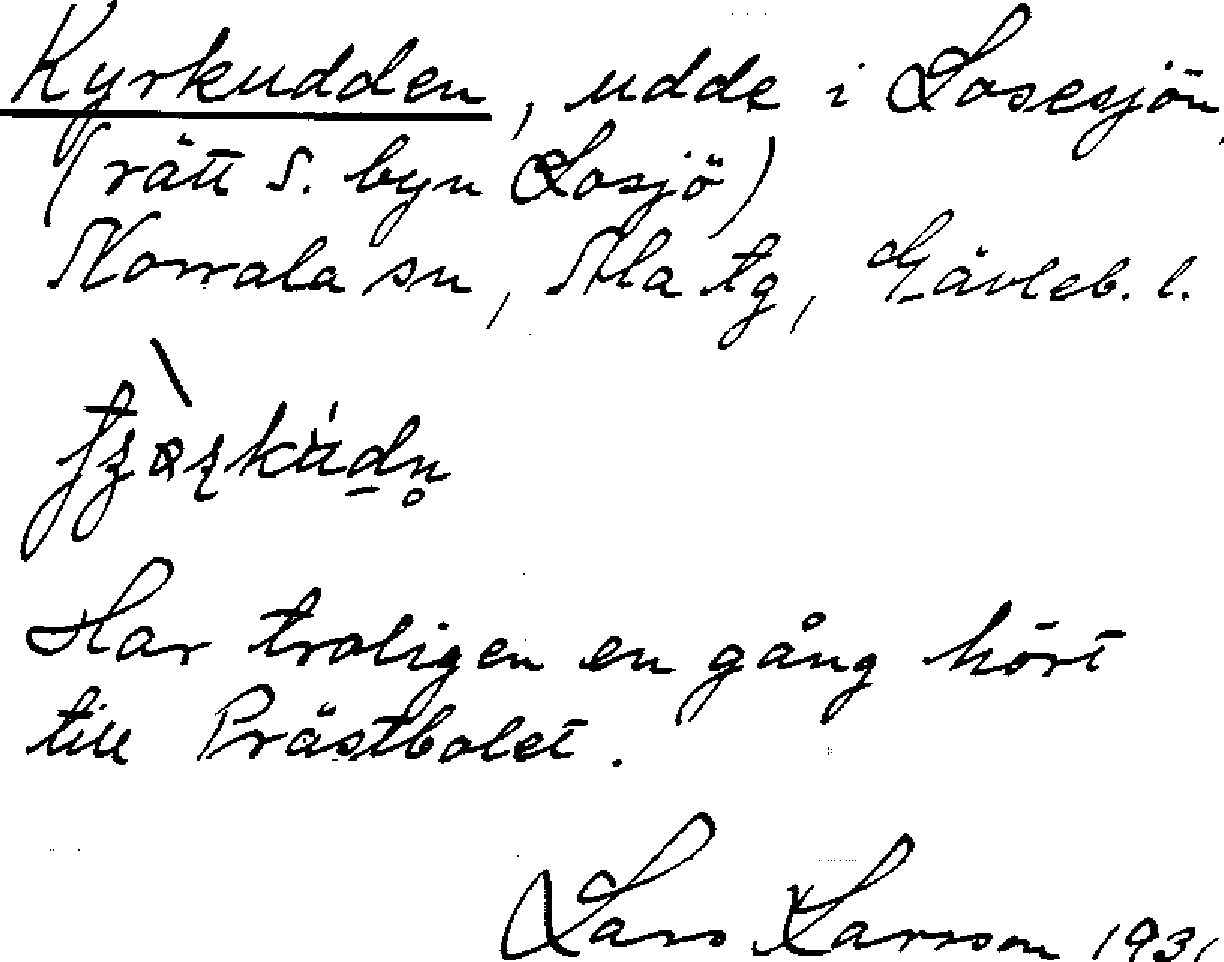 Kyrkudden, udde i Losesjön
(rätt S. byn Losjö)
Norrala sn, Ala tg, Gävleb. l.
Har troligen en gång hört
till Prästbolet.
Lars Larsson 1931